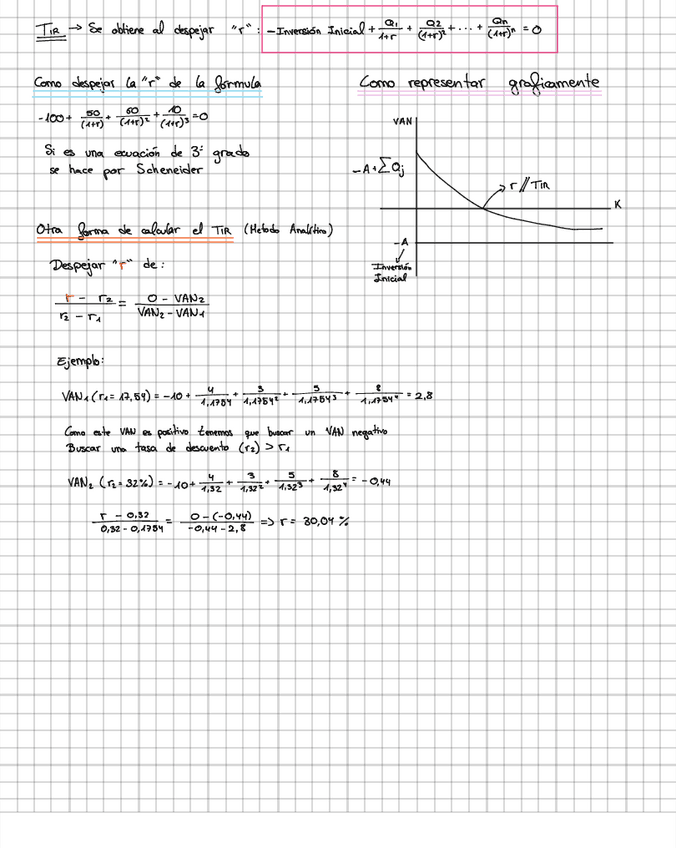 TIR → Se obtiene al despejar "r" : -Inversión Inicial + Q1/1+r + Q2/(1+r)² + ... + Qn/(1+r)ⁿ = 0
Como despejar la "r" de la formula
-100 + 50/(1+r) + 60/(1+r)² + 10/(1+r)³ = 0
Si es una ecuación de 3º grado
se hace por Scheneider
Como representar graficamente
VAN
-A+∑Qj
r // TIR
K
-A
Inversión
Inicial
Otra forma de calcular el TIR (Metodo Analítico)
Despejar "r" de:
r - r₂/r₂ - r₁ = 0 - VAN₂/VAN₂ - VAN₁
Ejemplo:
VAN₁ (r₁= 17,54) = -10 + 4/1,1754 + 3/1,1754² + 5/1,1754³ + 8/1,1754⁴ = 2,8
Como este VAN es positivo tenemos que buscar un VAN negativo
Buscar una tasa de descuento (r₂) > r₁
VAN₂ (r₂= 32%) = -10 + 4/1,32 + 3/1,32² + 5/1,32³ + 8/1,32⁴ = -0,44
r - 0,32/0,32 - 0,1754 = 0-(-0,44)/-0,44 - 2,8 => r = 30,04 %